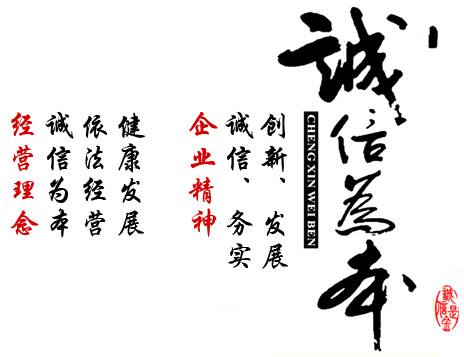 经营理念
诚信为本
依法经营
健康发展
企业精神
诚信、务实
创新、发展
CHENG XIN WEI BEN
誠信為本
誠信是金